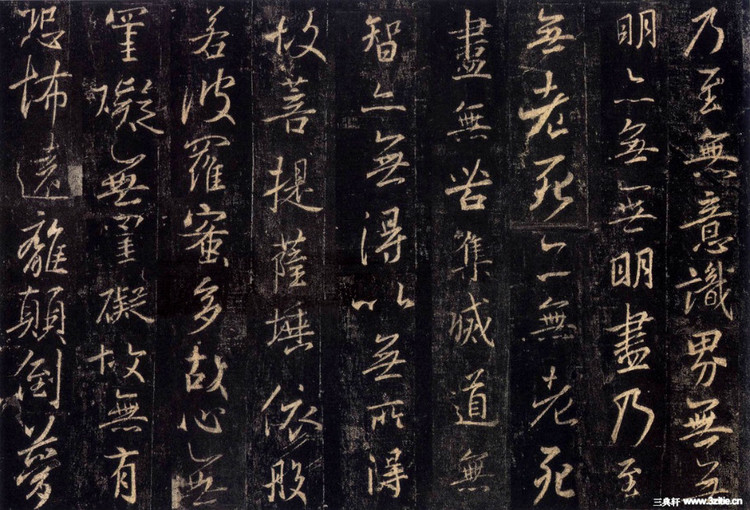 乃至無意識界無無
明亦無無明盡乃至
無老死亦無老死
盡無苦集滅道無
智亦無得以無所得
故菩提薩埵依般
若波羅蜜多故心無
罣礙無罣礙故無有
恐怖遠離顛倒夢
三典轩 www.3zitie.cn